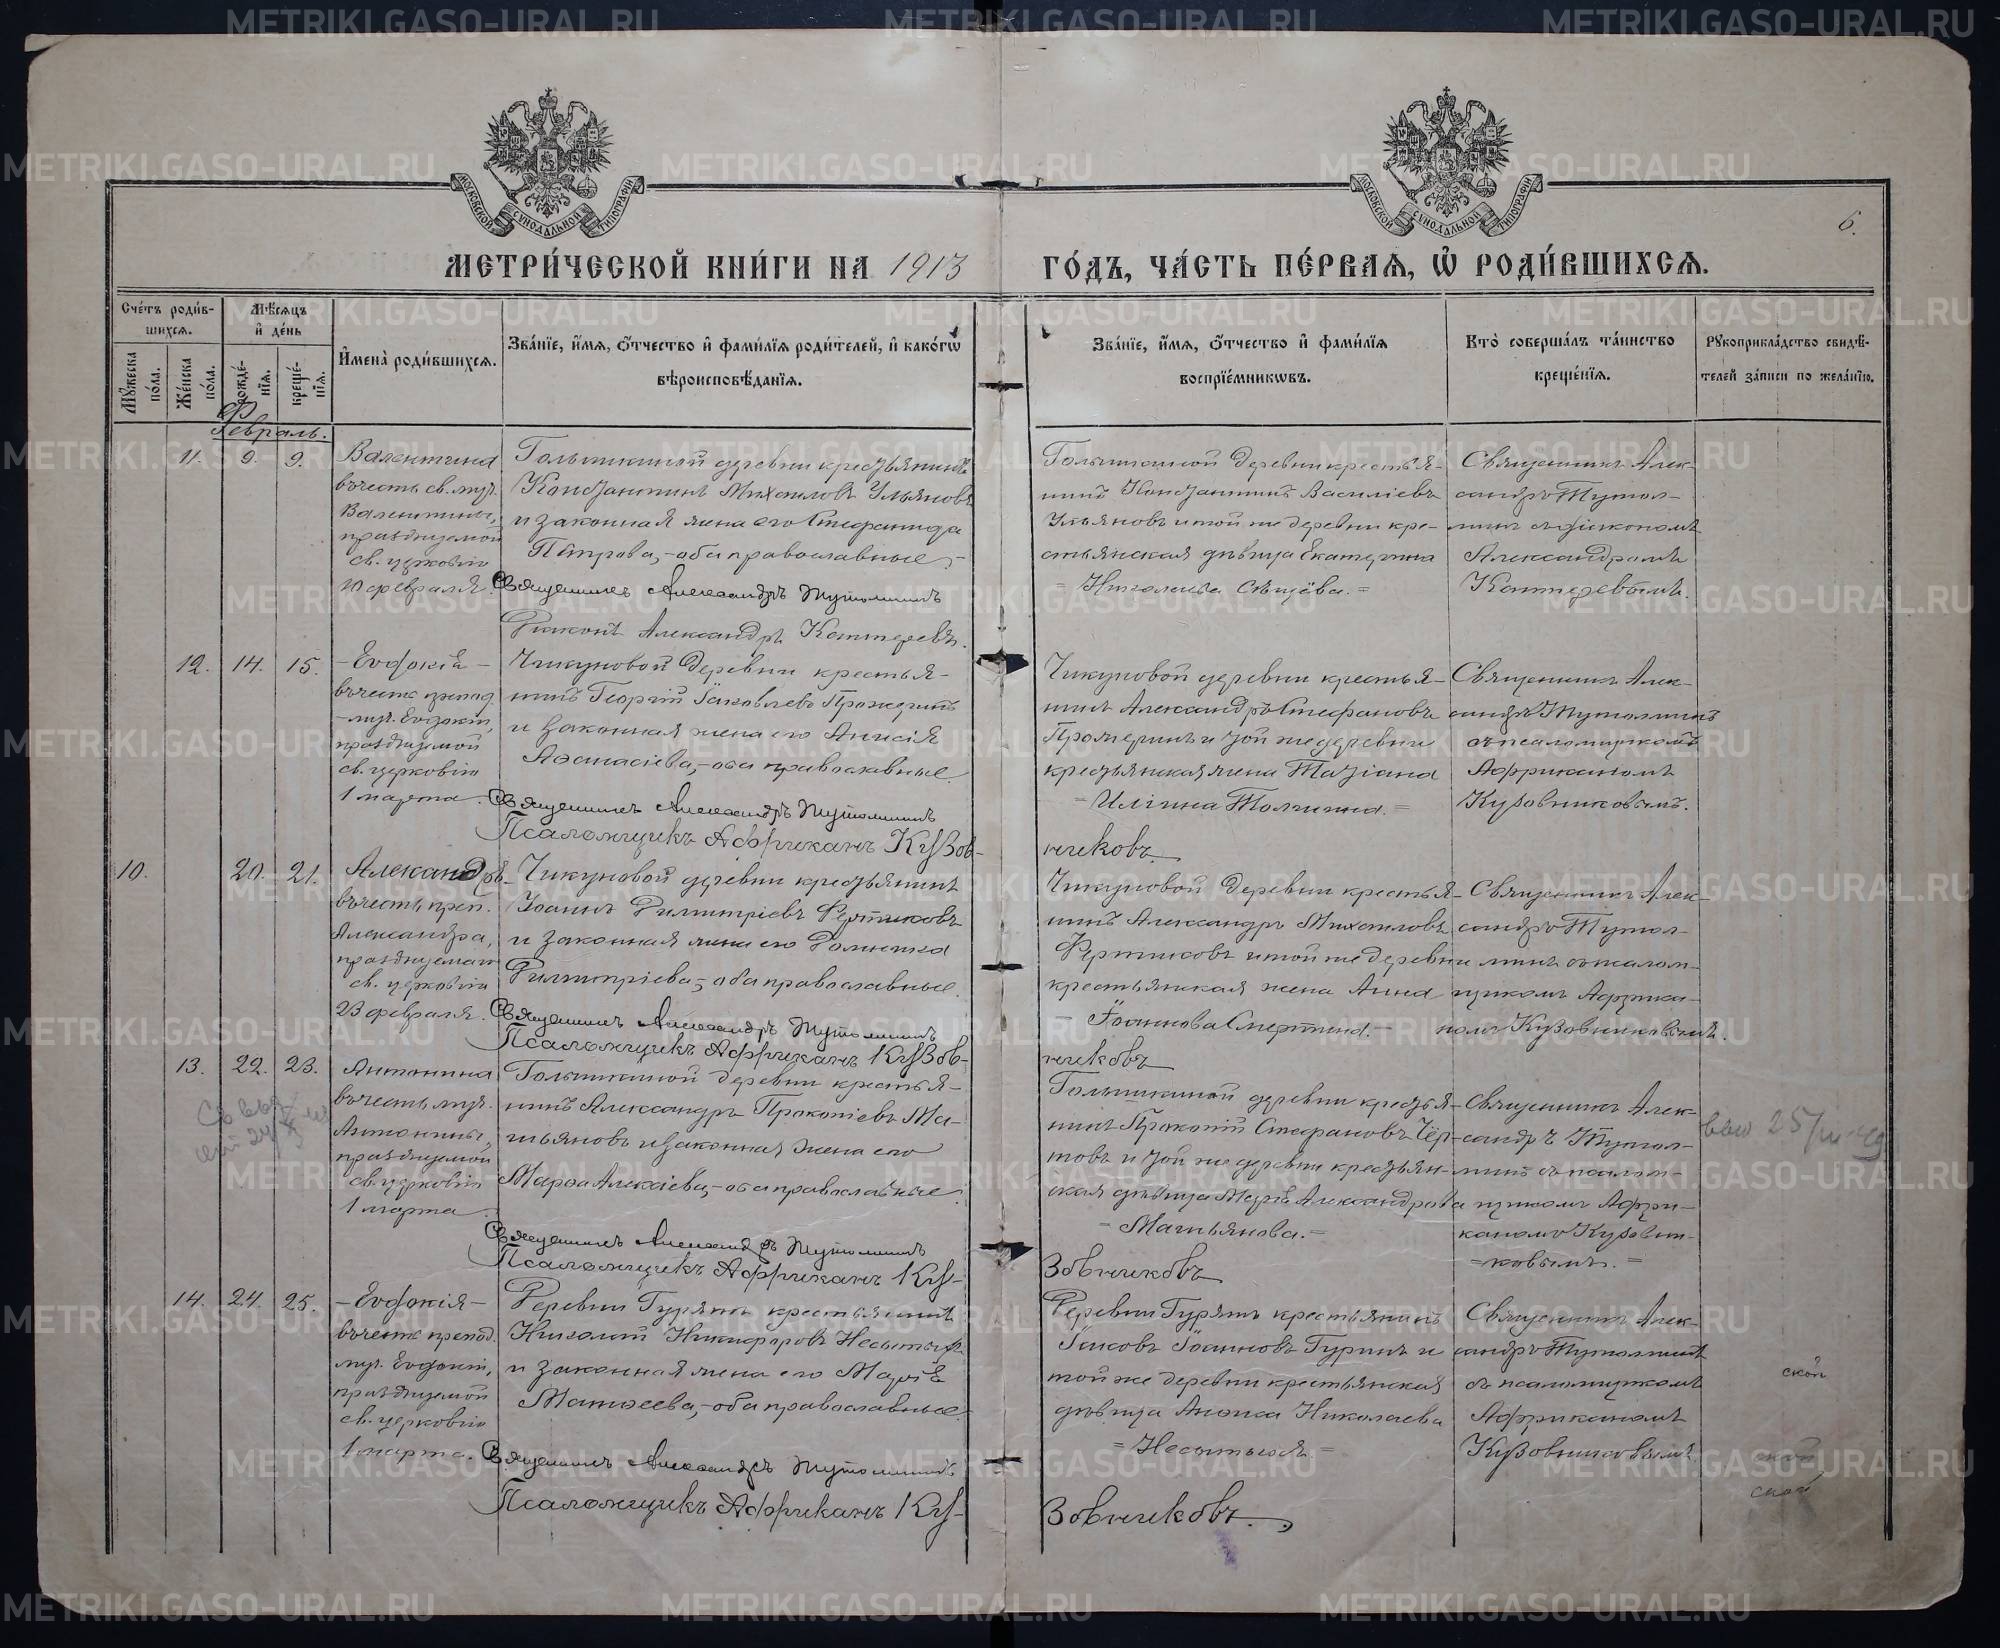 МОСКОВСКОЙ СѴНОДАЛЬНОЙ ТИПОГРАФІИ
МОСКОВСКОЙ СѴНОДАЛЬНОЙ ТИПОГРАФІИ
6.
МЕТРИ́ЧЕСКОЙ КНИ́ГИ НА 1913
ГО́ДЪ, ЧА́СТЬ ПЕ́РВАЯ, Ѡ҆ РОДИ́ВШИХСЯ.
Сче́тъ роди́в-
шихся.
Мѣ́сяцъ
и҆ де́нь
Мꙋ́жеска по́ла.
Же́нска по́ла.
рожде́-нїя.
креще́-нїя.
И҆мена̀ роди́вшихся.
Зва́нїе, и҆́мя, ѻ҆́тчество и҆ фами́лїя роди́телей, и҆ како́гѡ
вѣроисповѣ́данїя.
Зва́нїе, и҆́мя, ѻ҆́тчество и҆ фами́лїя
воспрїе́мникѡвъ.
Кто̀ соверша́лъ та́инство
креще́нїя.
Рꙋкоприкла́дство свидѣ́-
телей за́писи по жела́нїю.
Февраль.
11. 9. 9.
Валентина
въ честь св. муч.
Валентины,
празднуемой
св. церковію
10 февраля.
деревни крестьянинъ
Константинъ Михаиловъ Ульяновъ
и законная жена его Стефанида
Петрова, - оба православные, -
Священникъ Александръ Тутолминъ
Діаконъ Александръ Каттеревъ.
деревни крестья-
нинъ Константинъ Василіевъ
Ульяновъ и той же деревни кре-
стьянская дѣвица Екатерина
= Николаева =
Священникъ Алек-
сандръ Тутол-
минъ съ діакономъ
Александромъ
Каттеревымъ.
12. 14. 15.
- Евдокія -
въ честь препод.
- муч. Евдокіи,
празднуемой
св. церковію
1 марта.
Чикуновой деревни крестья-
нинъ Георгій Іаковлевъ Прожеринъ
и законная жена его Анисія
Аѳанасіева, - оба православные.
Священникъ Александръ Тутолминъ
Псаломщикъ Африканъ Кузов-
никовъ.
Чикуновой деревни крестья-
нинъ Александръ Стефановъ
Прожеринъ и той же деревни
крестьянская жена Татіана
= Иліина =
Священникъ Алек-
сандръ Тутолминъ
съ псаломщикомъ
Африканомъ
Кузовниковымъ.
10. 20. 21.
Александръ -
въ честь преп.
Александра,
празднуемаго
св. церковію
23 февраля.
Чикуновой деревни крестьянинъ
Іоаннъ Димитріевъ Фертиковъ
и законная жена его Домника
Димитріева, - оба православные.
Священникъ Александръ Тутолминъ
Псаломщикъ Африканъ Кузов-
никовъ
Чикуновой деревни крестья-
нинъ Александръ Михаиловъ
Фертиковъ и той же деревни
крестьянская жена Анна
- Іоаннова Смертина. -
Священникъ Алек-
сандръ Тутол-
минъ съ псалом-
щикомъ Африка-
номъ Кузовниковымъ.
13. 22. 23.
Антонина
въ честь муч.
Антонины,
празднуемой
св. церковію
1 марта.
деревни крестья-
нинъ Александръ Прокопіевъ Ма-
и законная жена его
Марѳа Алексіева, - оба православные.
Священникъ Александръ Тутолминъ
Псаломщикъ Африканъ Ку-
зовниковъ
деревни крестья-
нинъ Прокопій Стефановъ Чер-
товъ и той же деревни крестьян-
ская дѣвица Марія Александрова
Священникъ Алек-
сандръ Тутол-
минъ съ псалом-
щикомъ Афри-
каномъ Кузовни-
= ковымъ. =
14. 24. 25.
- Евдокія -
въ честь препод.
муч. Евдокіи,
празднуемой
св. церковію
1 марта.
Деревни Гурятъ крестьянинъ
Николай Никифоровъ Несытыхъ
и законная жена его Марія
Матѳеева, - оба православные.
Священникъ Александръ Тутолминъ
Псаломщикъ Африканъ Ку-
зовниковъ.
Деревни Гурятъ крестьянинъ
Іаковъ Іоанновъ Гуринъ и
той же деревни крестьянская
дѣвица Анѳиса Николаева
= Несытыхъ. =
Священникъ Алек-
сандръ Тутолминъ
съ псаломщикомъ
Африканомъ
Кузовниковымъ.
ской
ской
METRIKI.GASO-URAL.RU